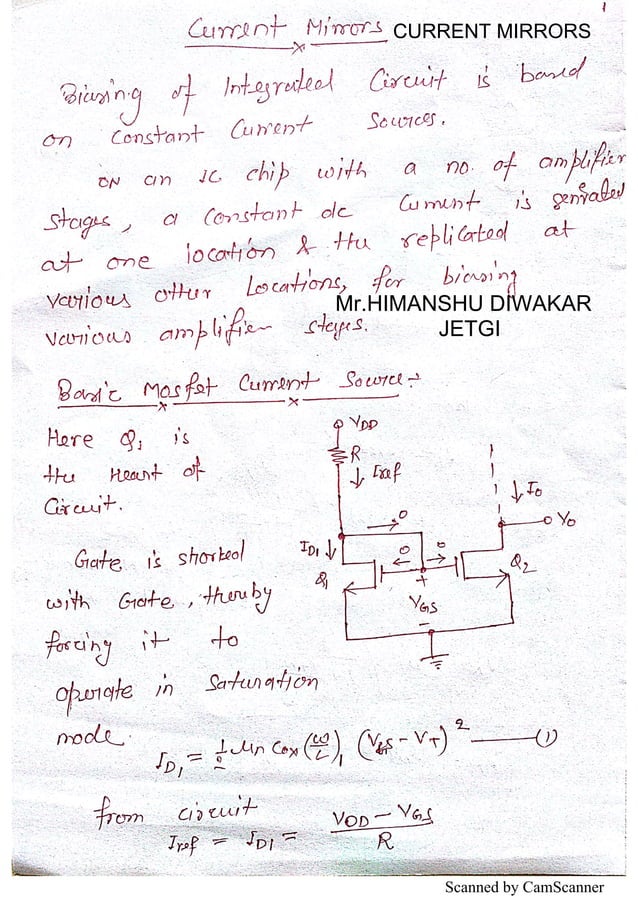 1
Current Mirrors CURRENT MIRRORS
Biasing of Integrated Circuit is based
on Constant Current Sources.
ON an IC chip with a no. of amplifier
stages, a constant dc Current is genrated
at one location & the replicated at
various other Locations, for biasing
Mr.HIMANSHU DIWAKAR
various amplifier stages.
JETGI
Basic Mosfet Current Source :-
Here Q1 is
the Heart of
Circuit.
Gate is shorted
with Gate, thereby
forcing it to
operate in Saturation
mode.
VDD
R
Iref
I0
0
V0
ID1
0
0
Q1
Q2
+
VGS
-
ID1 = 1/2 μn Cox (W/L)1 (VGS - VT)² —— (1)
from circuit
Iref = ID1 = (VDD - VGS)/R
Scanned by CamScanner